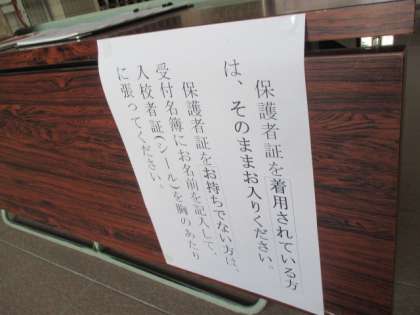 保護者証を着用されている方
は、そのままお入りください。
保護者証をお持ちでない方は、
受付名簿にお名前を記入して、
入校者証(シール)を胸のあたり
に張ってください。